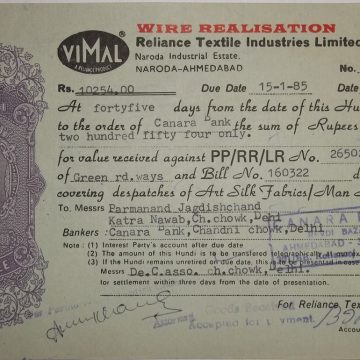 WIRE REALISATION
VIMAL
A RELIANCE PRODUCT
Reliance Textile Industries Limited
Naroda Industrial Estate,
NARODA-AHMEDABAD
No.
Rs. 10254.00 Due Date 15-1-85
At fortyfive days from the date of this Hu
to the order of Canara Bank the sum of Rupees
two hundred fifty four only.
for value received against PP/RR/LR No. 2650
of Green rd.ways and Bill No 160322 d
covering despatches of Art Silk Fabrics/Man
To Messrs Parmanand Jagdishchand
Katra Nawab, Ch.chowk, Delhi
Bankers : Canara Bank, Chandni chowk, Delhi
Note : (1) Interest Party's account after due date
(2) The amount of this Hundi is to be transferred telegraphically
(3) If the Hundi remains unretired on due date, this to be presented in case
Messrs De.C.asso. ch.chowk, Delhi.
for settlement within three days from the date of presentation.
CANARA
BAZ
AHMEDABAD
Goods Received
Accepting for payment.
For Reliance Te
Accoun